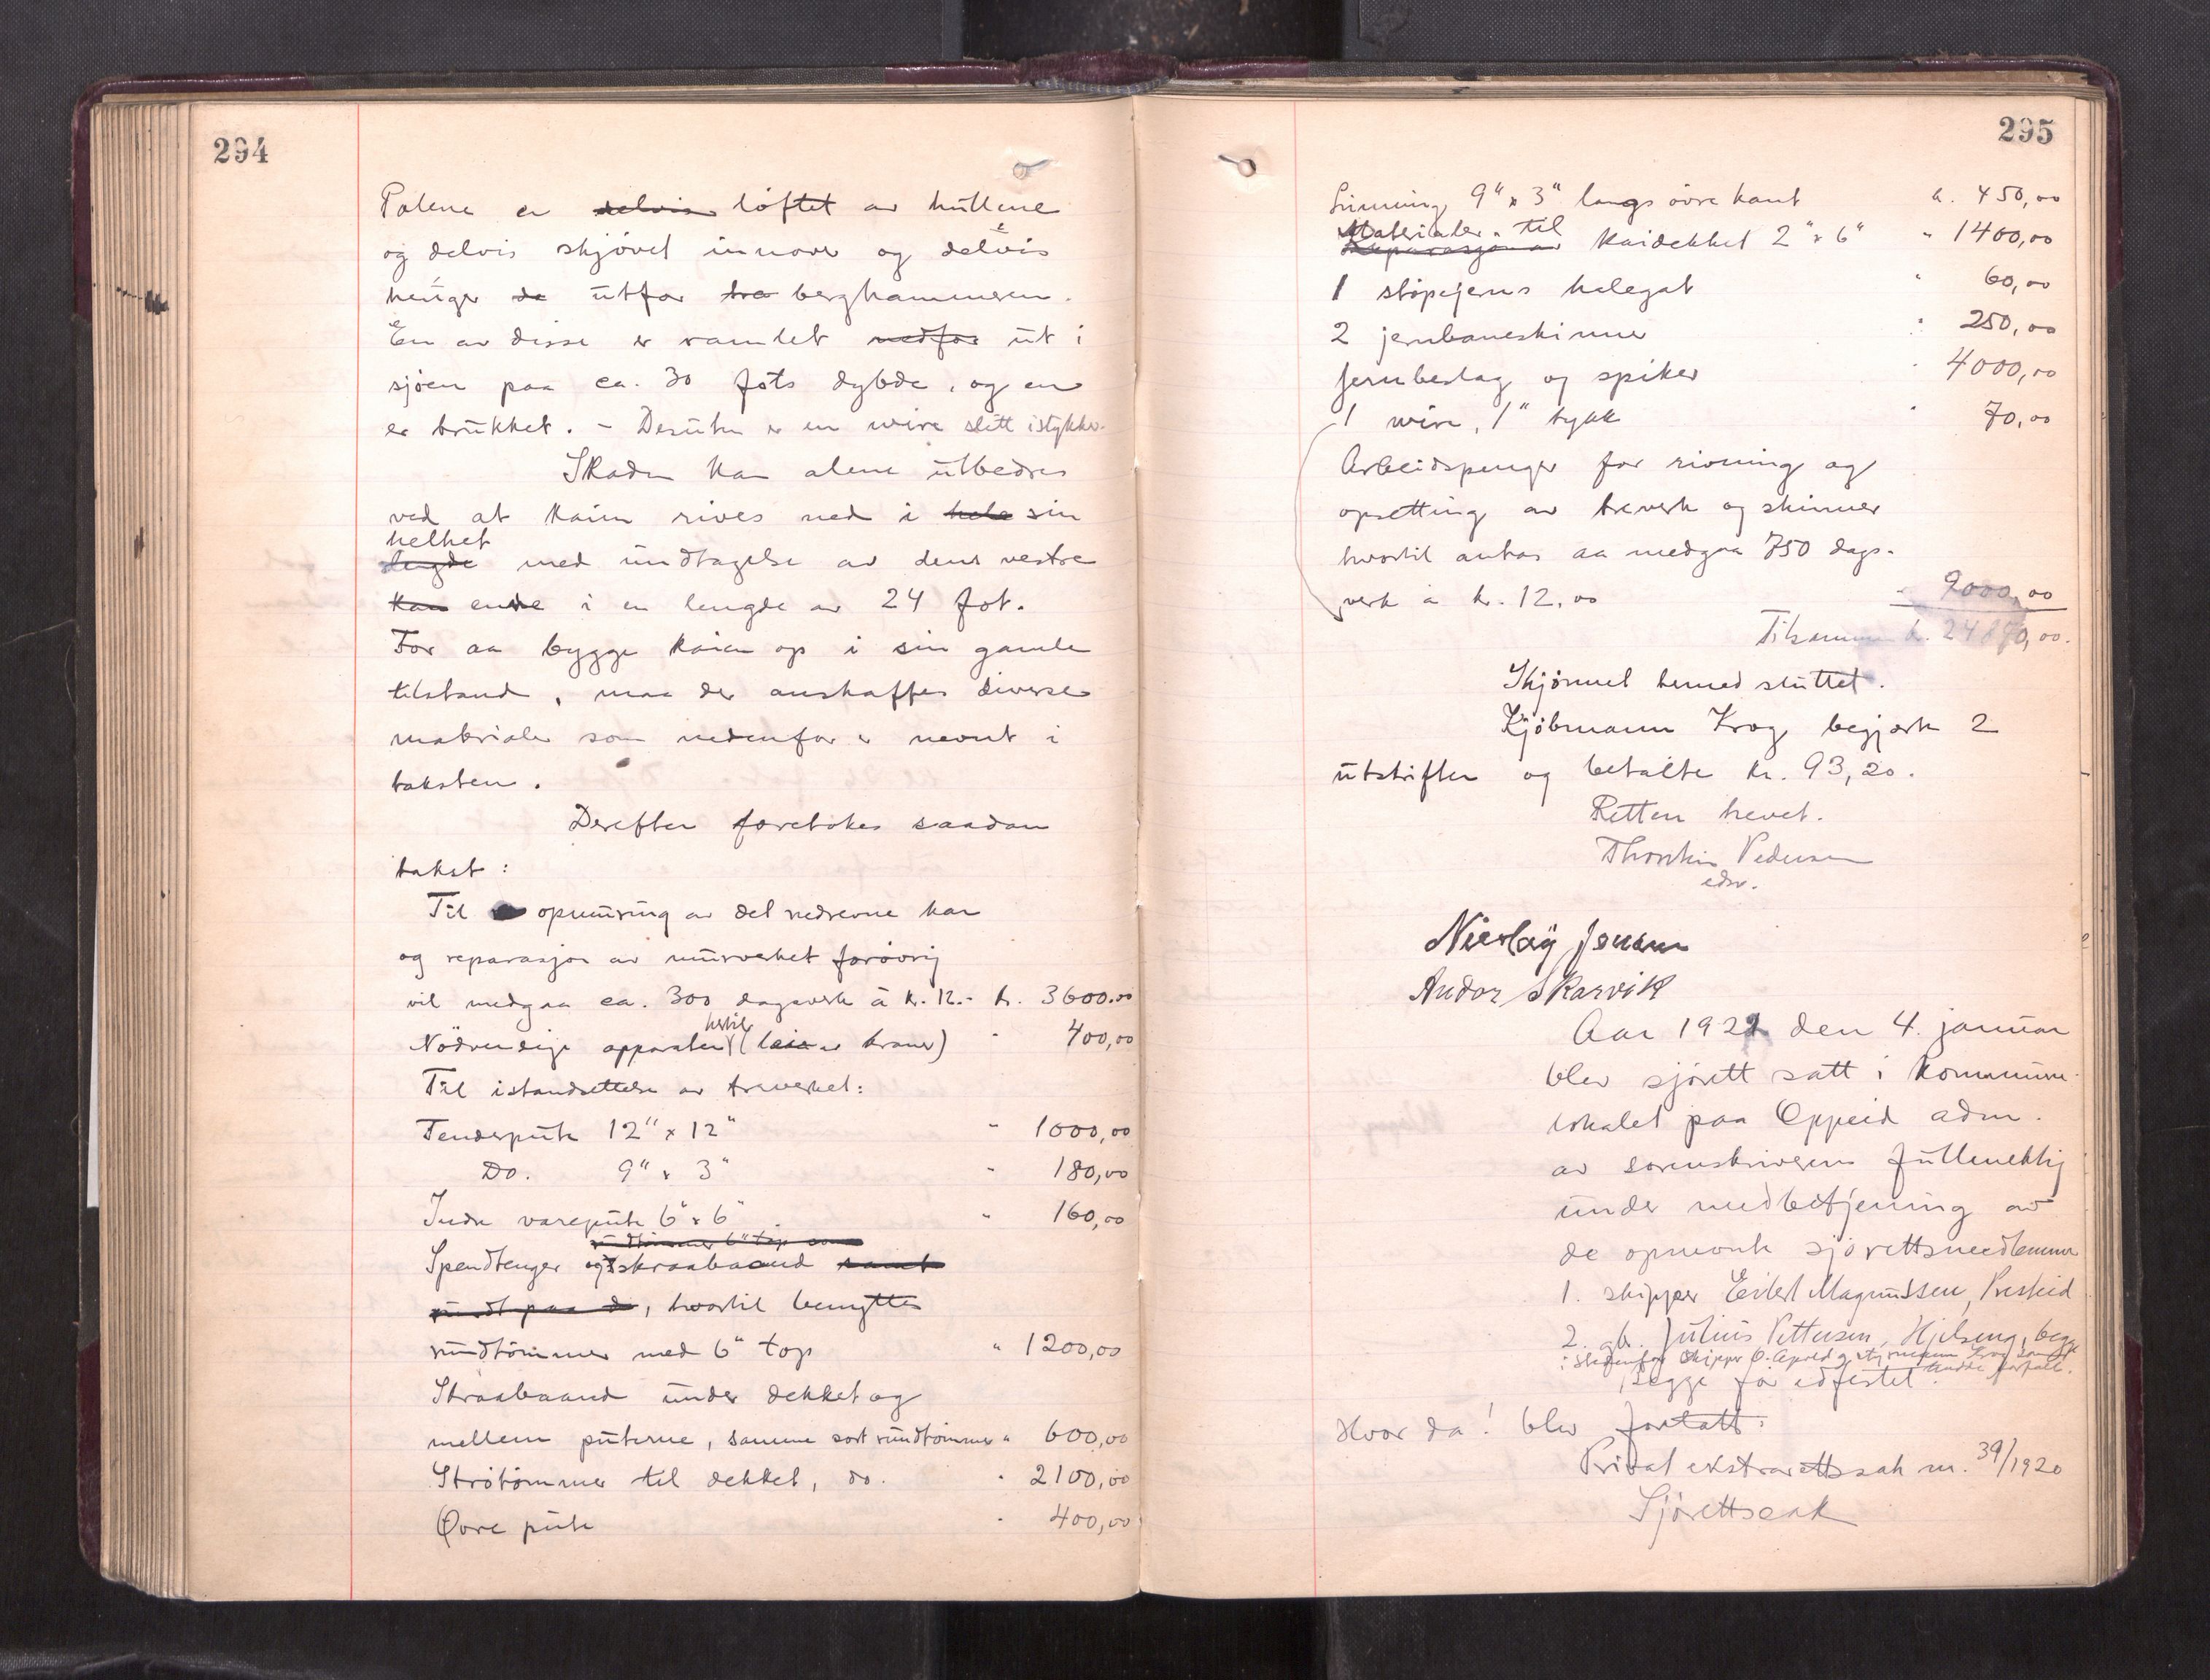 294
Palene er delvis løftet av hullene
og delvis skjøvet innover og delvis
henger de utfor bra berghammeren.
En av disse er ramlet nedfor ut i
sjøen paa ca. 30 fots dybde, og en
er brukket. - Desuten er en wire slitt istykker.
Skaden kan alene utbedres
ved at kaien rives ned i hele sin
helhet
lengde med undtagelse av dens vestre
kan ende i en lengde av 24 fot.
For aa bygge kaien op i sin gamle
tilstand, maa der anskaffes diverse
materialer som nedenfor er nevnt i
taksten.
Derefter foretokes saadan
takst:
Til opmuring av det nedrevne kar
og reparasjon av murverket forøvrig
vil medgaa ca. 300 dagsverk á kr. 12.- kr. 3600.00
hertil
Nødvendige apparater (leie av kraner) " 400,00
Til istandsettelse av treverket:
Fenderpute 12" x 12" " 1000,00
Do. 9" x 3" " 180,00
Indre varepute 6" x 6" " 160,00
rundtømmer 6" top
Spendtenger og skraabaand samt
rundt paa d, hvortil benyttes
rundtømmer med 6" top " 1200,00
Skraabaand under dekket og
mellem puterne, samme sort rundtømmer " 600,00
Strøtømmer til dekket, do. " 2100,00
Øvre pute " 400,00
295
9" x 3" langs øvre kant k. 450,00
Materialer til
Reparasjon av kaidekket 2" x 6" " 1400,00
1 støpejerns halegat " 60,00
2 jernbaneskinner " 250,00
Jernbeslag og spiker " 4000,00
1 wire, 1" tykk " 70,00
Arbeidspenger for rivning og
opsetting av treverk og skinner
hvortil antas aa medgaa 750 dags-
verk a kr. 12,00 " 9000,00
Tilsammen kr. 24870,00.
Skjønnet hermed sluttet.
Kjøbmann Krog begjærte 2
utskrifter og betalte kr. 93,20.
Retten hevet.
Thorstein Pedersen
edsv.
Nicolay Jensen
Andor Skarvik
Aar 1921 den 4. januar
blev sjørett satt i kommune-
lokalet paa Oppeid adm.
av sorenskriverens fullmektig
under medbetjening av
de opnevnte sjørettsmedlemmer
1. skipper Eilert Magnussen, Presteid
2. gb. Julius Pettersen, Hjelseng, begge
istedenfor skipper O. Apold og styrmann Krog som
hadde forfall.
, begge før edfestet.
Hvor da! blev foretatt:
Privat ekstrarettssak nr. 39/1920
Sjørettssak